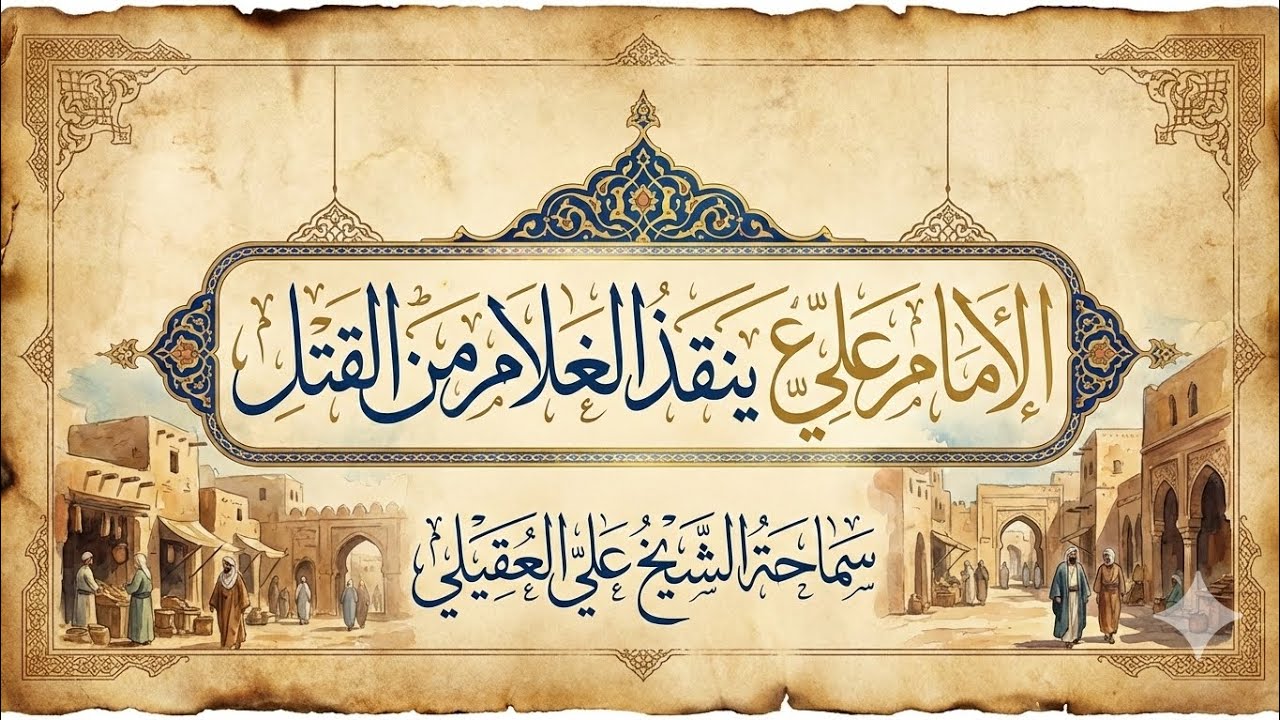 الإمام عليّ ينقذ الغلام من القتل
سماحة الشيخ علي العقيلي